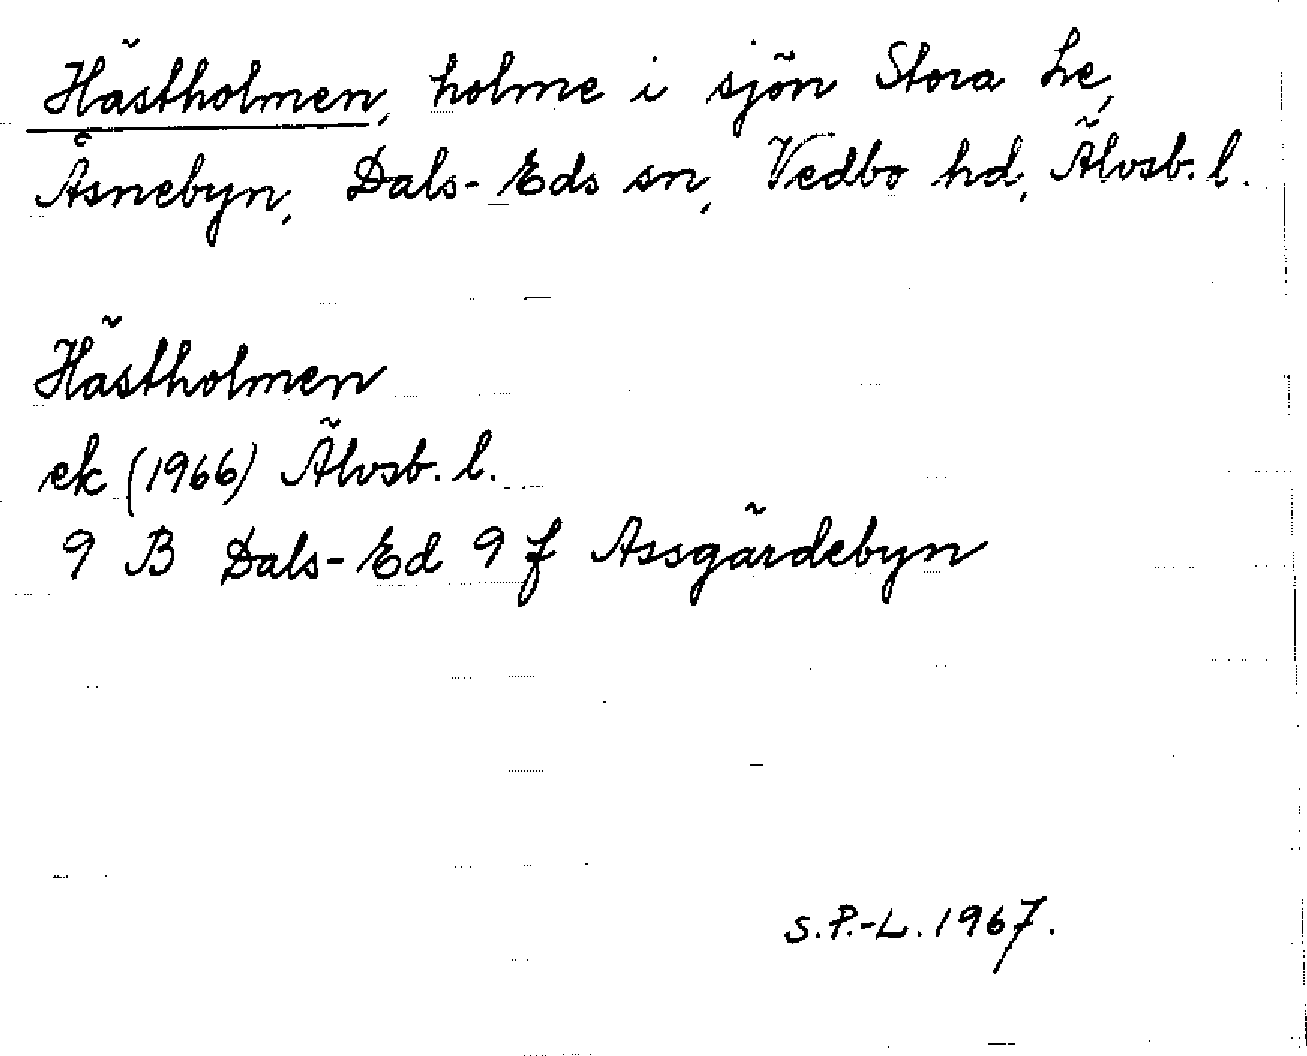 Hästholmen, holme i sjön Stora Le,
Åsnebyn, Dals-Eds sn, Vedbo hd, Älvsb. l.
Hästholmen
ek (1966) Älvsb. l.
9 B Dals-Ed 9 f Assgärdebyn
S.P.-L. 1967.